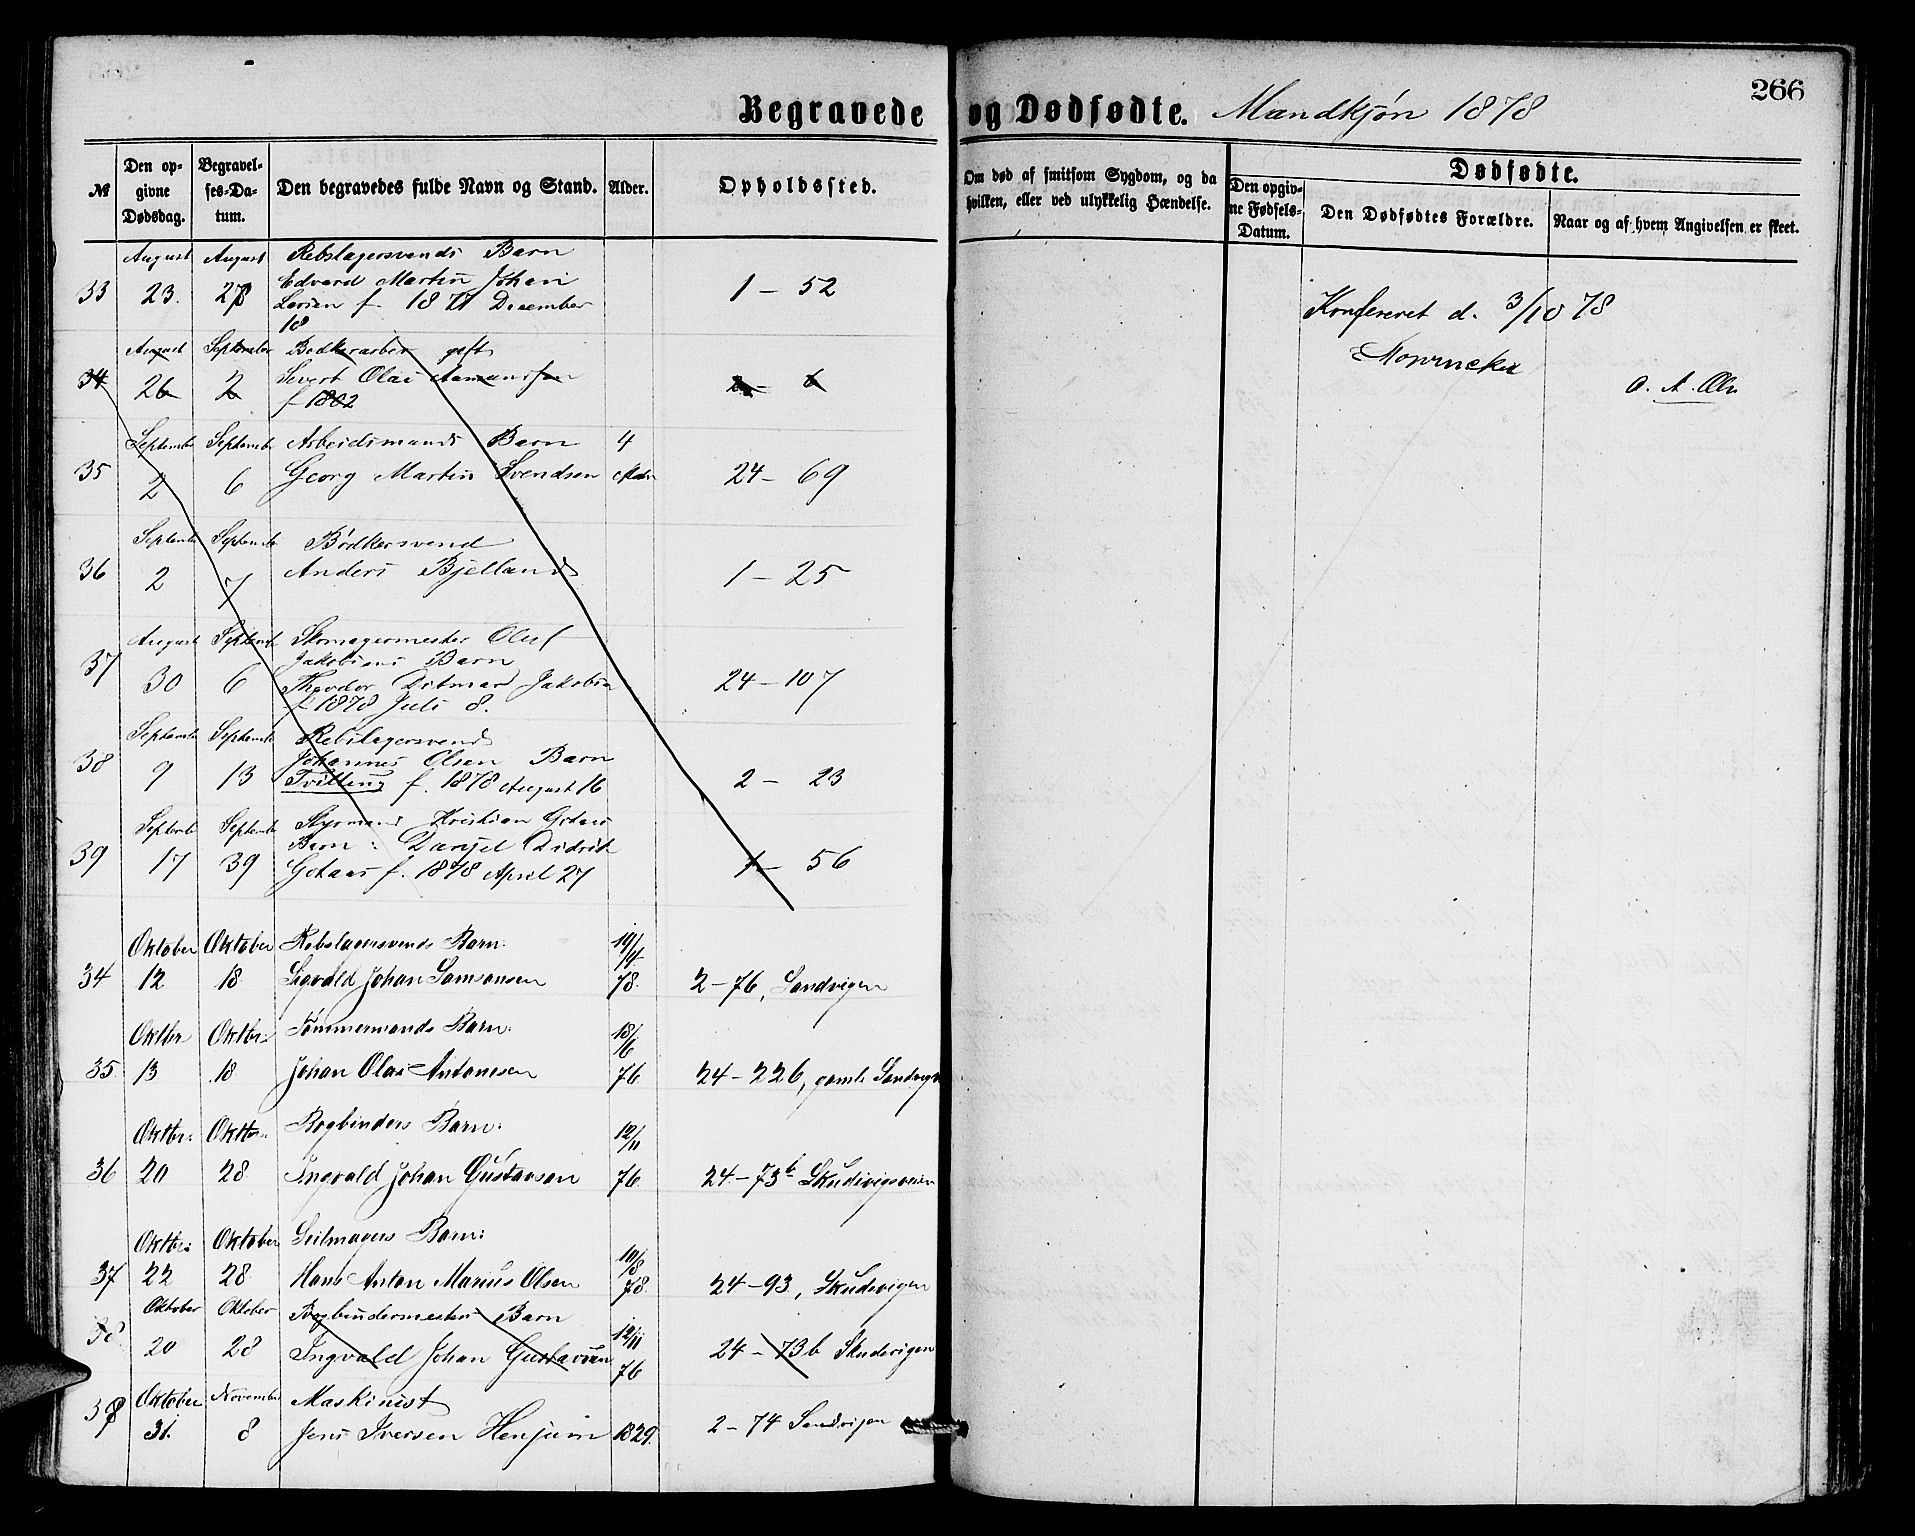 266
Begravede og Dødfødte. Mandkjøn 1878
№
Den opgivne Dødsdag.
Begravelses-Datum.
Den begravedes fulde Navn og Stand.
Alder.
Opholdssted.
Om død af smitsom Sygdom, og da hvilken, eller ved ulykkelig Hændelse.
Dødfødte.
Den opgivne Fødsels-Datum.
Den Dødfødtes Forældre.
Naar og af hvem Angivelsen er skeet.
August August Rebslagersvends Barn
33 23. 28 Edvard Martin Johan 1 – 52
Larsen f. 1877 December
18
August September Bødkerarbeider gift
34 26 2 Sivert Olai Aamundsen 2 – 6
f 1802
September September Arbeidsmands Barn 4
35 2 6 Georg Martin Svendsen Mdr 24 – 69
Septembr Septembr Bødkersvend
36 2 7 Anders Bjelland 1 – 25
August Septembr Skomagermester Oluf
37 Jakobsens Barn
30 6 Theodor Ditmar Jakobsen 24 – 107
f 1878 Juli 8.
Septembr Septembr Rebslagersvend
38 Johannes Olsen Barn
9 13 Tvilling f. 1878 August 16 2 – 23
Septembr Septembr Styrmand Kristian Gotaas
39 Barn: Danjel Didrik
17 39 Gotaas f. 1878 April 27 1 – 56
Oktober Oktober Rebslagersvends Barn: 19/4
34 12 18 Sigvald Johan Samsonsen 78. 2 – 76, Sandvigen
Oktbr Oktbr: Tømmermands Barn: 18/6
35. 13 18 Johan Olai Antonesen 76 24 – 226, gamle Sandvigs
Oktbr: Oktbr: Bogbinders Barn: 12/11
36 20 28 Ingvald Johan Gustavsen 76. 24 – 73b Skudevigsveien
Oktbr: Oktober Seilmagers Barn: 10/8
37 22 28 Hans Anton Marius Olsen 78. 24 – 93, Skudevigen
Oktober Oktober Bogbindermesters Barn 12/11
38 20 28 Ingvald Johan Gustavsen 76 24 – 73b Skudevigen
Oktober November Maskinist
38 31. 8 Jens Iversen Henjum 1829. 2 – 74 Sandvigen
Konfereret d. 3/10 78
O. A. Ols